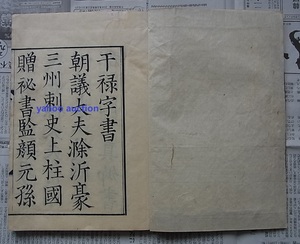 干禄字書
朝議大夫滁沂豪
三州刺史上柱國
贈祕書監顔元孫
yahoo auction